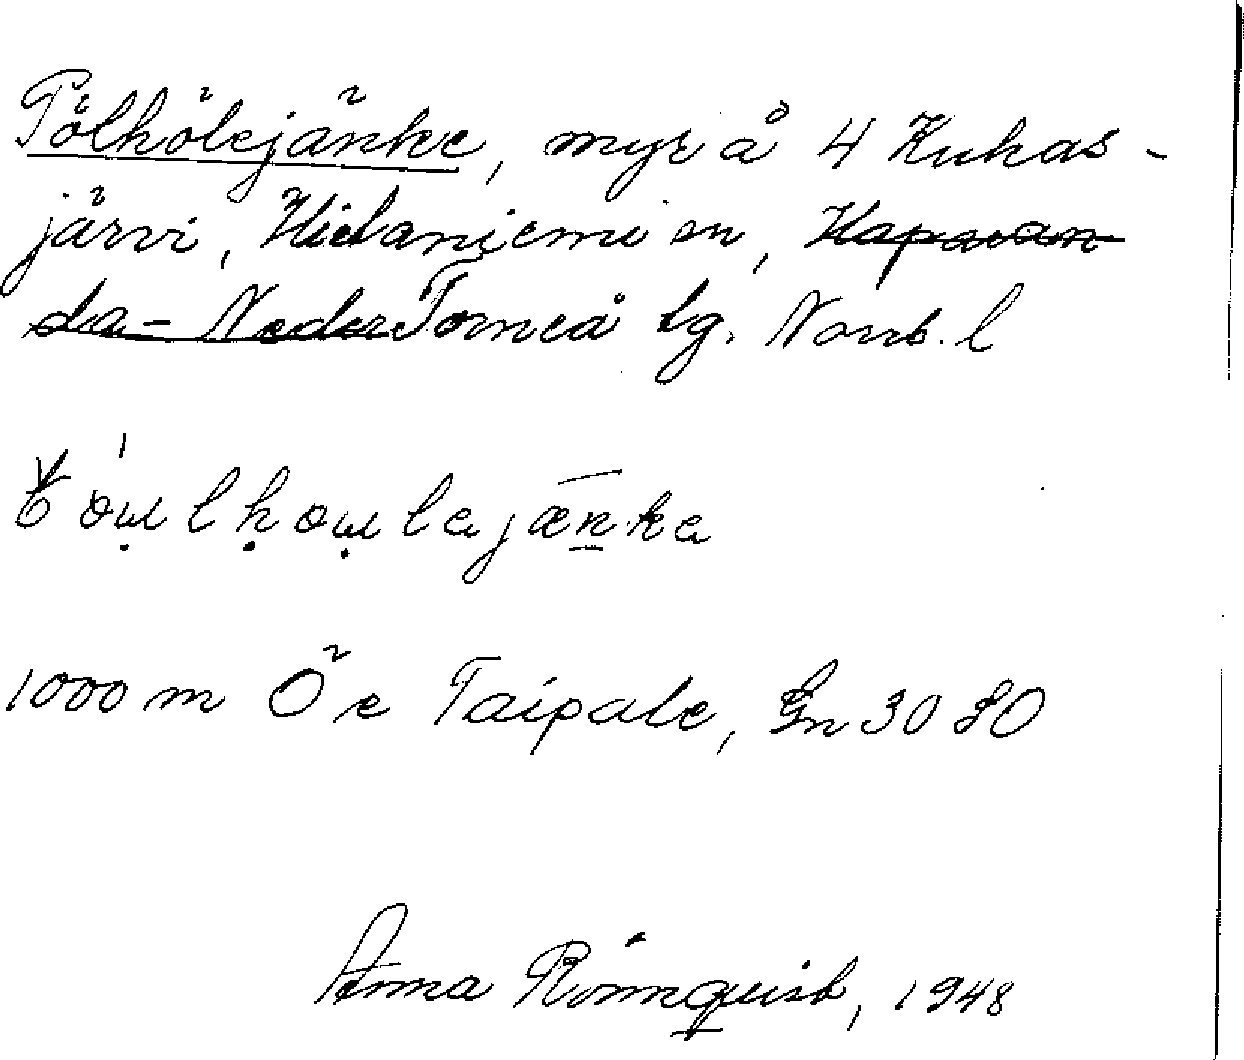 Tölhölejänke, myr å 4 Kukas-
järvi, Hietaniemi sn, Haparan
da- Neder Torneå tg. Norrb. l
tówlhowlajænka
1000 m Ö e Taipale, En 30 SO
Anna Rönnquist, 1948